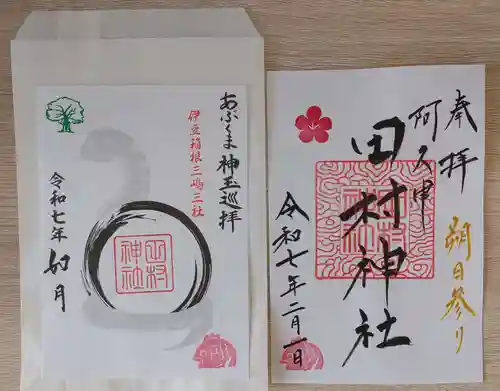 あぶくま神玉巡拝
伊豆箱根三嶋三社
田村神社
令和七年
如月
奉拝
阿久津
朔日参り
田村神社
令和七年二月一日